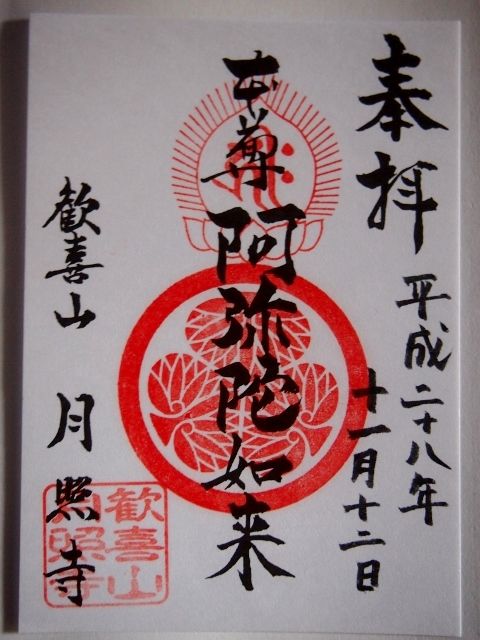 奉拝
平成二十八年
十一月十二日
本尊 阿弥陀如来
歓喜山 月照寺
歓喜山
月照寺